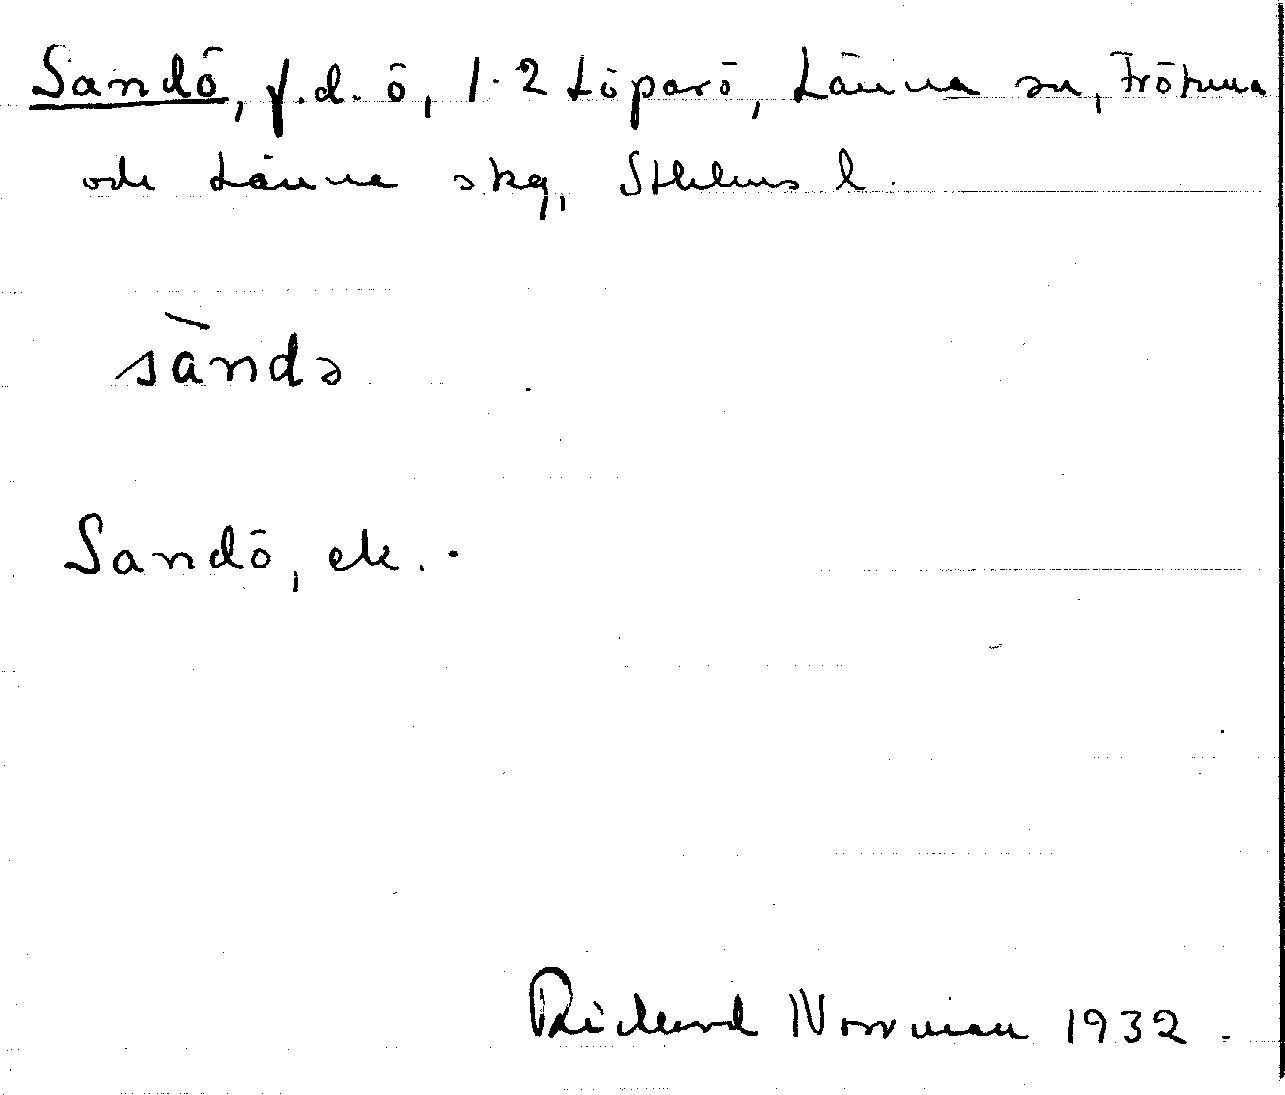 Sandö, f.d. ö, 1-2 Löparö, Länna sn, Frötuna
och Länna skg, Sthlms l.
sàndə
Sandö, ek.
Rickard Norrman 1932.